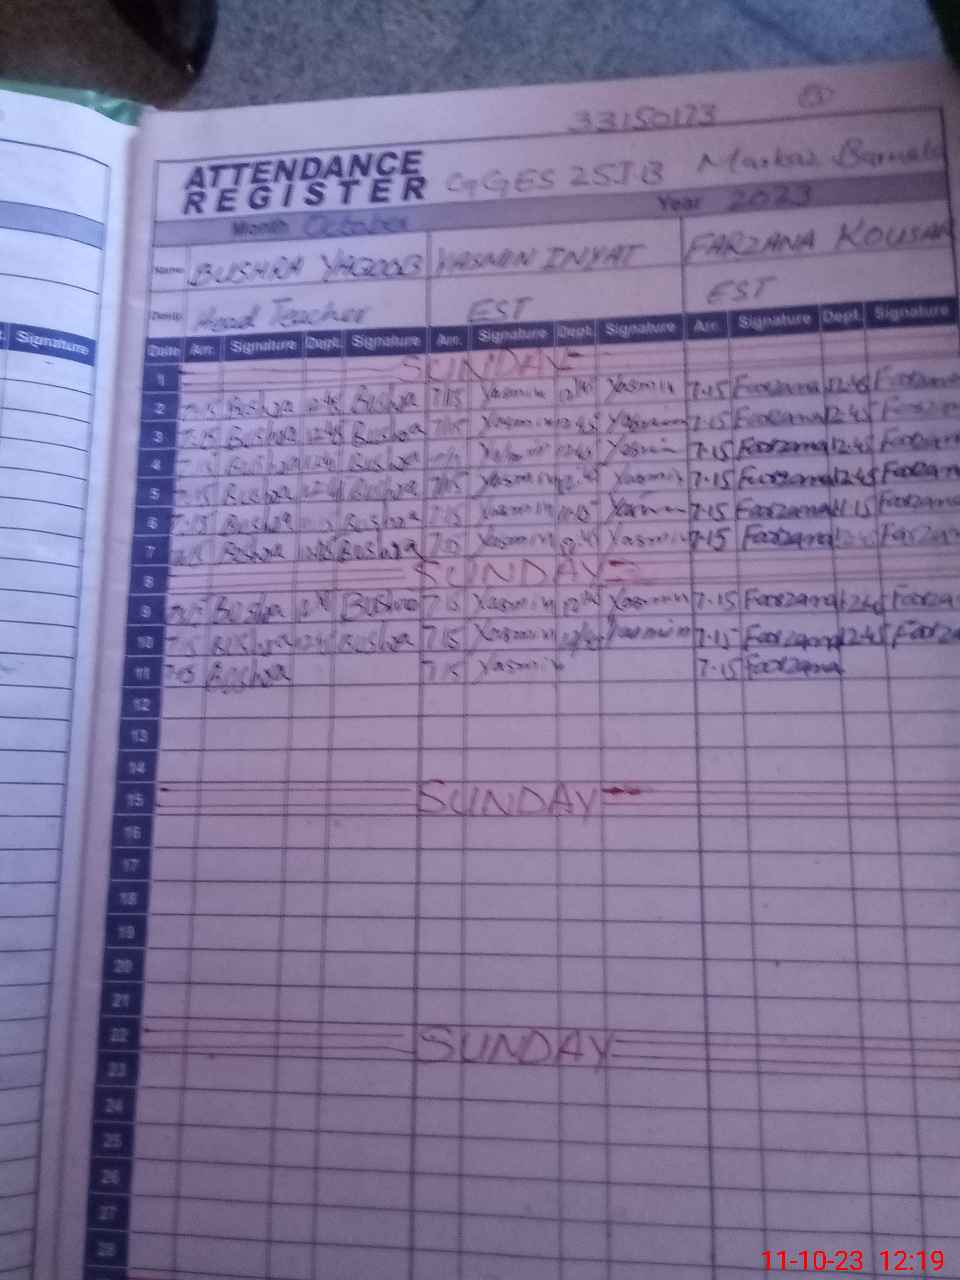 33150173
ATTENDANCE REGISTER GGES 25J.B Markaz Barnala
Month October Year 2023
Name BUSHRA YAQOOB YASMIN INYAT FARZANA KOUSAR
Head Teacher EST EST
Signature
Date Arr. Signature Dept. Signature Arr. Signature Dept. Signature Arr. Signature Dept. Signature
1 SUNDAY
2 Bushra 12:45 Bushra 7:15 Yasmin Yasmin 7.15 Farzana 12.45 Farzana
3 Bushra 12:45 Bushra 7:15 Yasmin 12:45 Yasmin 7.15 Farzana 12.45 Farzana
4 7:15 Bushra Bushra Yasmin Yasmin 7.15 Farzana 12.45 Farzana
5 7:15 Bushra Bushra 7:15 Yasmin Yasmin 7.15 Farzana 12.45 Farzana
6 7:15 Bushra Bushra 7:15 Yasmin 11:15 Yasmin 7.15 Farzana 11.15 Farzana
7 Bushra Bushra Yasmin Yasmin 7.15 Farzana Farzana
8 SUNDAY
9 Bushra Bushra 7:15 Yasmin Yasmin 7.15 Farzana Farzana
10 7:15 Bushra Bushra 7:15 Yasmin Yasmin 7.15 Farzana 12.45 Farzana
11 7:15 Bushra 7:15 Yasmin 7.15 Farzana
12
13
14
15 SUNDAY
16
17
18
19
20
21
22 SUNDAY
23
24
25
26
27
28
11-10-23 12:19